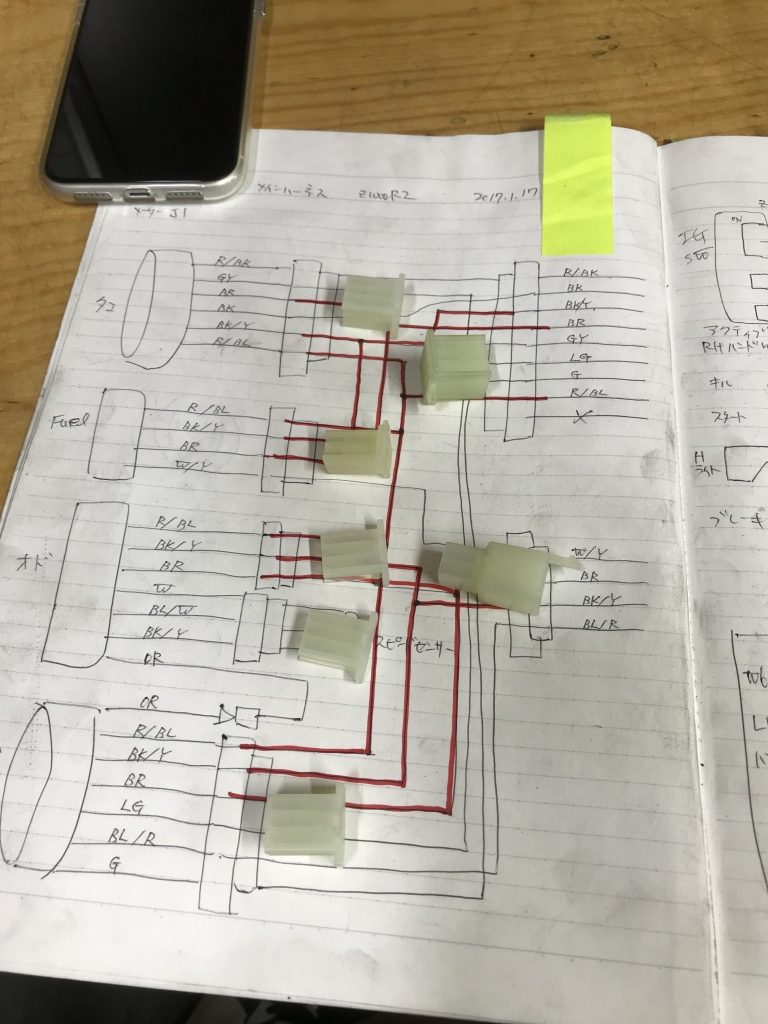 メインハーネス Z1000R2 2017.1.17
メーター J1
タコ
R/BK
GY
BR
BK
BK/Y
R/BL
R/BK
BK
BK/Y
BR
GY
LG
G
R/BL
X
Fuel
R/BL
BK/Y
BR
W/Y
オド
R/BL
BK/Y
BR
W
BL/W
BK/Y
OR
スピードセンサー
W/Y
BR
BK/Y
BL/R
OR
R/BL
BK/Y
BR
LG
BL/R
G
ON
SW
アクティブ
RHハンドル
キル
スタート
H
ライト
ブレーキ